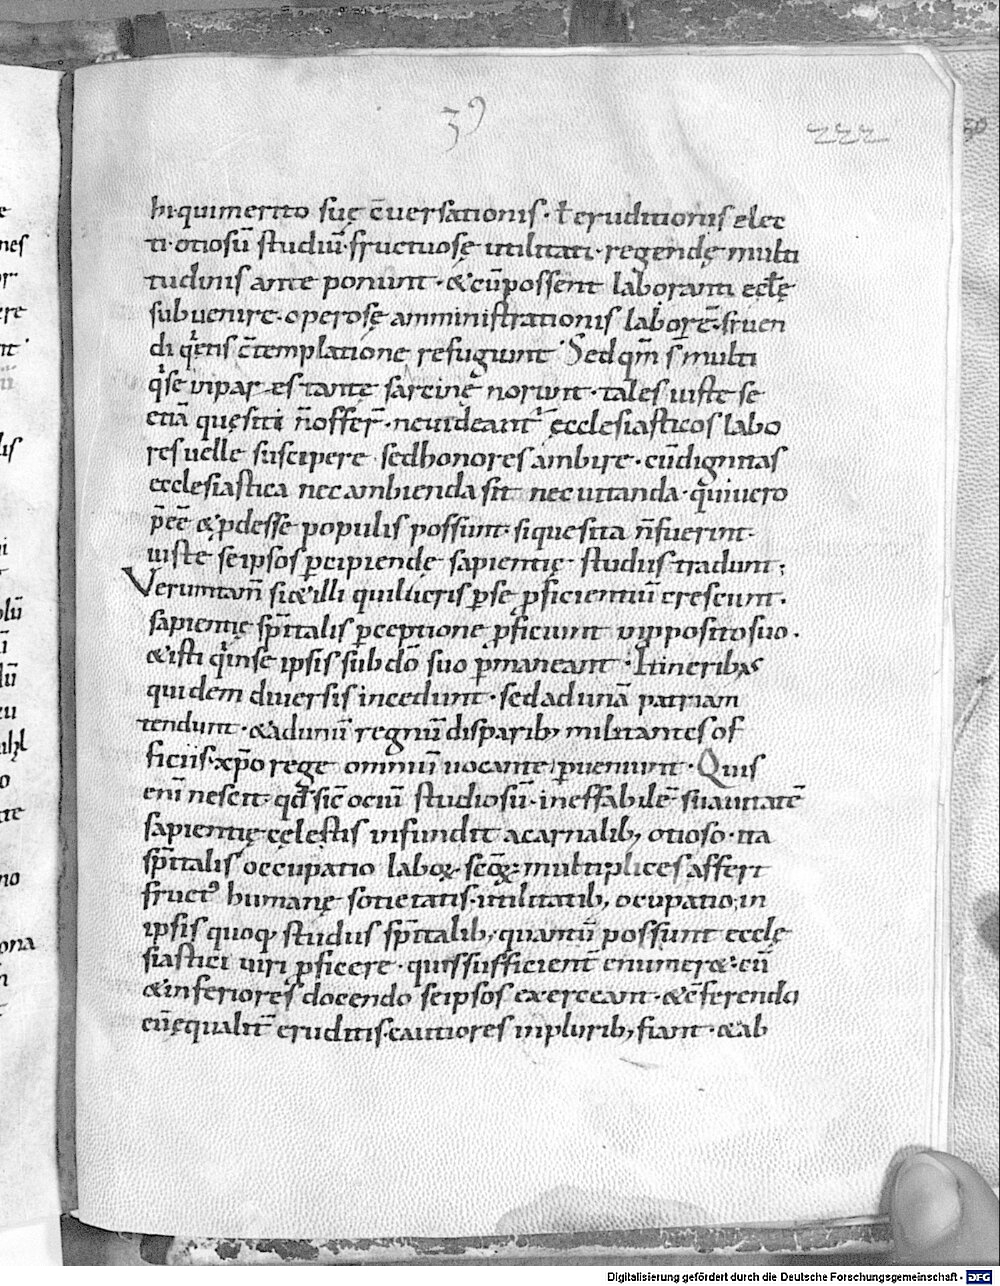 39
222
hi·qui merito suę c̄uersationis· ł eruditionis elec
ti· otiosū studiū· fructuosę utilitati· regendę multi
tudinis ante ponunt· & cū possent laboranti eccłę
subuenire· operosę amministrationis laborē· fruen
di q̄etis c̄templatione refugiunt· Sed qm̄ s̄ multi
qͥ se impares tantę sarcinę norunt· tales iuste se
etiā quęsiti n̄ offer̄· ne uideant᷑ ęcclesiasticos labo
res uelle suscipere· sed honores ambire· cū dignitas
ecclesiastica nec ambienda sit nec uitanda· qͥ uero
p̄eē & p̄desse populis possunt· si quesita n̄ fuerint·
iuste se ipsos percipiendę sapientię· studiis tradunt;
Verumtam̄ sic & illi qui lucris p̱ se ꝓficientiū crescunt·
sapientię sp̄italis p̱ceptione ꝓficiunt in pposito suo·
& isti qͥ in se ipsis sub dō suo p̱maneant· Itineribus
quidem diuersis incedunt· sed ad unā patriam
tendunt· & ad unū regnū disparib; militantes of
ficiis· xp̄o rege omniū uocante p̱ueniunt· Quis
enī nescit· qđ sic̄ ociū studiosū· ineffabilē suauitatē
sapientię cęlestis infundit a carnalib; otioso· ita
sp̄italis occupatio laboꝝ· scōꝝ· multiplices affert
fruct᷒ humanę societatis· utilitatib; ocupatio; in
ipsis quoq; studiis sp̄italib; quantū possunt ecclę
siastici uiri ꝓficere· quis sufficient̄ enumer&· cū
& inferiores docendo se ipsos exerceant· & c̄ferendo
cū ęqualit̄ eruditis· cautiores in plurib; fiant· & ab
Digitalisierung gefördert durch die Deutsche Forschungsgemeinschaft - DFG